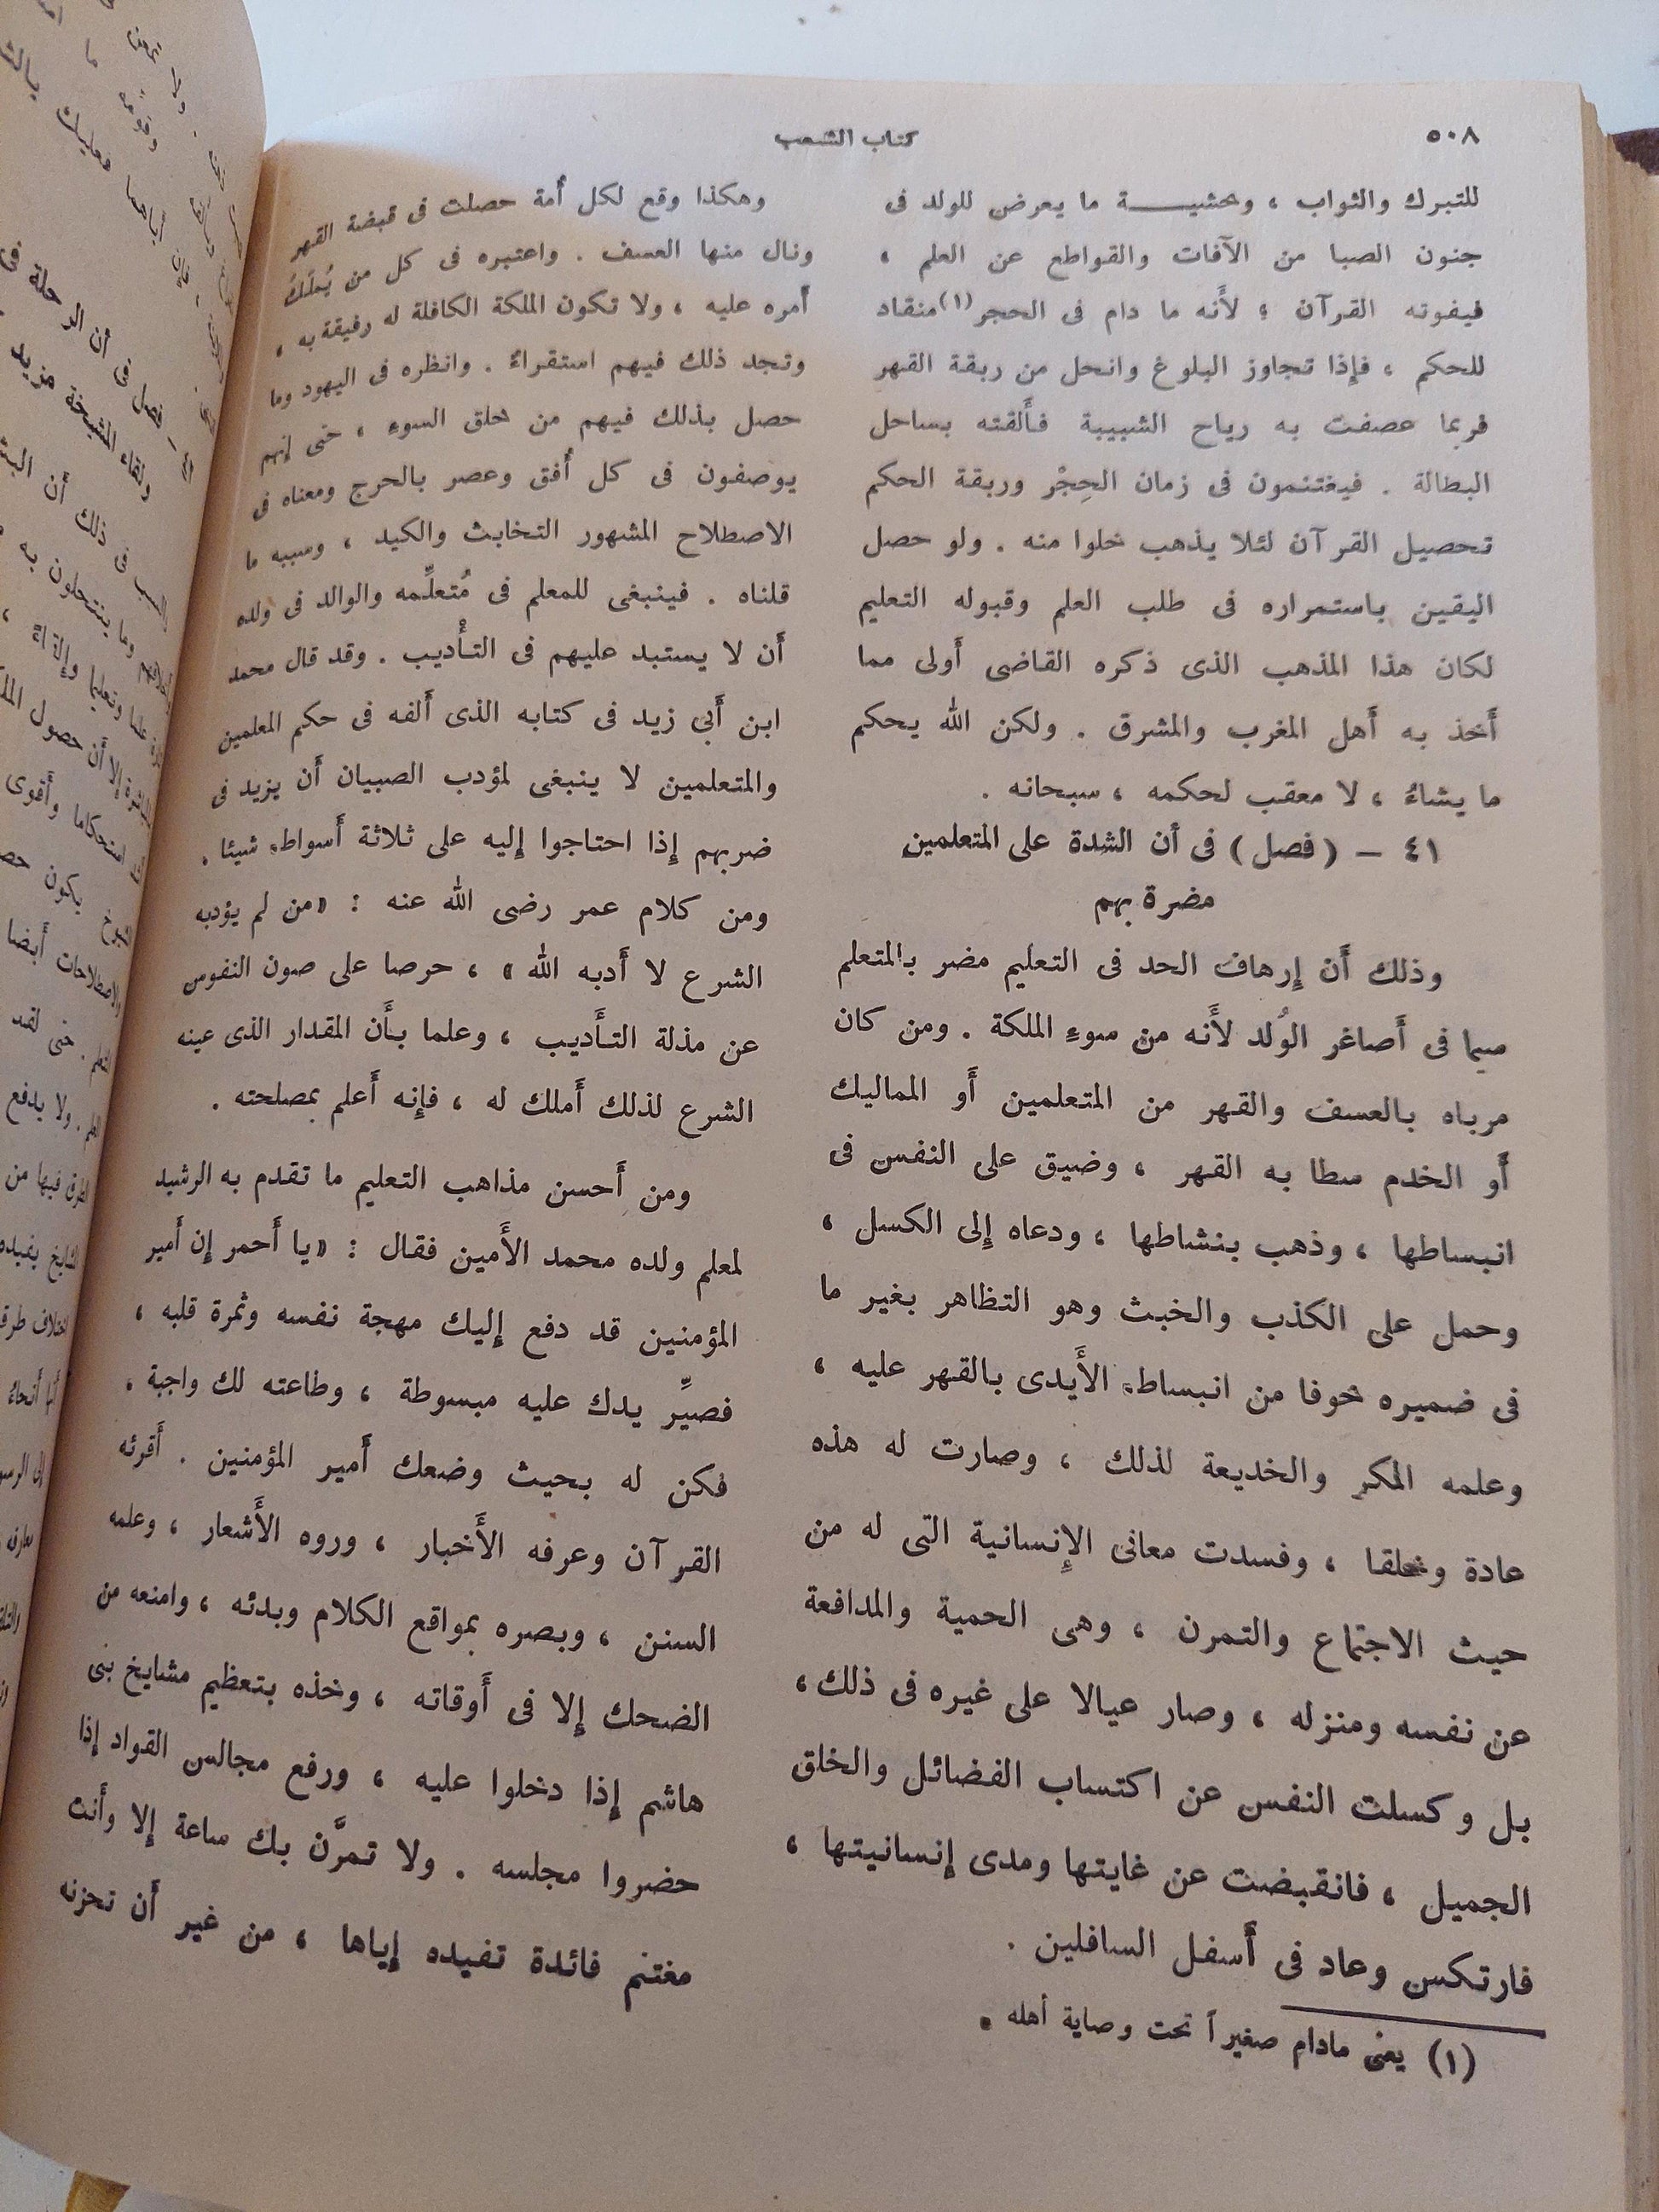 ٥٠٨
كتاب الشعب
للتبرك والثواب ، وخشيـــة ما يعرض للولد فى
جنون الصبا من الآفات والقواطع عن العلم ،
فيفوته القرآن ؛ لأَنه ما دام فى الحجر (١) منقاد
للحكم ، فإِذا تجاوز البلوغ وانحل من ربقة القهر
فربما عصفت به رياح الشبيبة فأَلقته بساحل
البطالة . فيغتنمون فى زمان الحِجْر وربقة الحكم
تحصيل القرآن لئلا يذهب خلوا منه . ولو حصل
اليقين باستمراره فى طلب العلم وقبوله التعليم
لكان هذا المذهب الذى ذكره القاضى أَولى مما
أَخذ به أَهل المغرب والمشرق . ولكن الله يحكم
ما يشاءُ ، لا معقب لحكمه ، سبحانه .
٤١ – ( فصل ) فى أن الشدة على المتعلمين
مضرة بهم
وذلك أَن إِرهاف الحد فى التعليم مضر بالمتعلم
سيما فى أَصاغر الوُلد لأَنه من سوءِ الملكة . ومن كان
مرباه بالعسف والقهر من المتعلمين أَو المماليك
أَو الخدم سطا به القهر ، وضيق على النفس فى
انبساطها ، وذهب بنشاطها ، ودعاه إِلى الكسل ،
وحمل على الكذب والخبث وهو التظاهر بغير ما
فى ضميره خوفا من انبساط الأَيدى بالقهر عليه ،
وعلمه المكر والخديعة لذلك ، وصارت له هذه
عادة وخلقا ، وفسدت معانى الإِنسانية التى له من
حيث الاجتماع والتمرن ، وهى الحمية والمدافعة
عن نفسه ومنزله ، وصار عيالا على غيره فى ذلك ،
بل وكسلت النفس عن اكتساب الفضائل والخلق
الجميل ، فانقبضت عن غايتها ومدى إِنسانيتها ،
فارتكس وعاد فى أَسفل السافلين .
(١) يعنى مادام صغيراً تحت وصاية أهله .
وهكذا وقع لكل أُمة حصلت فى قبضة القهر
ونال منها العسف . واعتبره فى كل من يُملَكُ
أَمره عليه ، ولا تكون الملكة الكافلة له رفيقة به ،
وتجد ذلك فيهم استقراءً . وانظره فى اليهود وما
حصل بذلك فيهم من خلق السوءِ ، حتى إِنهم
يوصفون فى كل أُفق وعصر بالحرج ومعناه فى
الاصطلاح المشهور التخابث والكيد ، وسببه ما
قلناه . فينبغى للمعلم فى مُتعلِّمه والوالد فى ولده
أَن لا يستبد عليهم فى التأْديب . وقد قال محمد
ابن أَبى زيد فى كتابه الذى أَلفه فى حكم المعلمين
والمتعلمين لا ينبغى لمؤدب الصبيان أَن يزيد فى
ضربهم إِذا احتاجوا إِليه على ثلاثة أَسواط شيئا .
ومن كلام عمر رضى الله عنه : «من لم يؤدبه
الشرع لا أَدبه الله » ، حرصا على صون النفوس
عن مذلة التأَديب ، وعلما بأَن المقدار الذى عينه
الشرع لذلك أَملك له ، فإِنه أَعلم بمصلحته .
ومن أَحسن مذاهب التعليم ما تقدم به الرشيد
لمعلم ولده محمد الأَمين فقال : «يا أَحمر إِن أَمير
المؤمنين قد دفع إِليك مهجة نفسه وثمرة قلبه ،
فصيِّر يدك عليه مبسوطة ، وطاعته لك واجبة .
فكن له بحيث وضعك أَمير المؤمنين . أَقرئه
القرآن وعرفه الأَخبار ، وروه الأَشعار ، وعلمه
السنن ، وبصره بمواقع الكلام وبدئه ، وامنعه من
الضحك إِلا فى أَوقاته ، وخذه بتعظيم مشايخ بنى
هاشم إِذا دخلوا عليه ، ورفع مجالس القواد إِذا
حضروا مجلسه . ولا تمرَّن بك ساعة إِلا وأَنت
مغتنم فائدة تفيده إِياها ، من غير أَن تحزنه